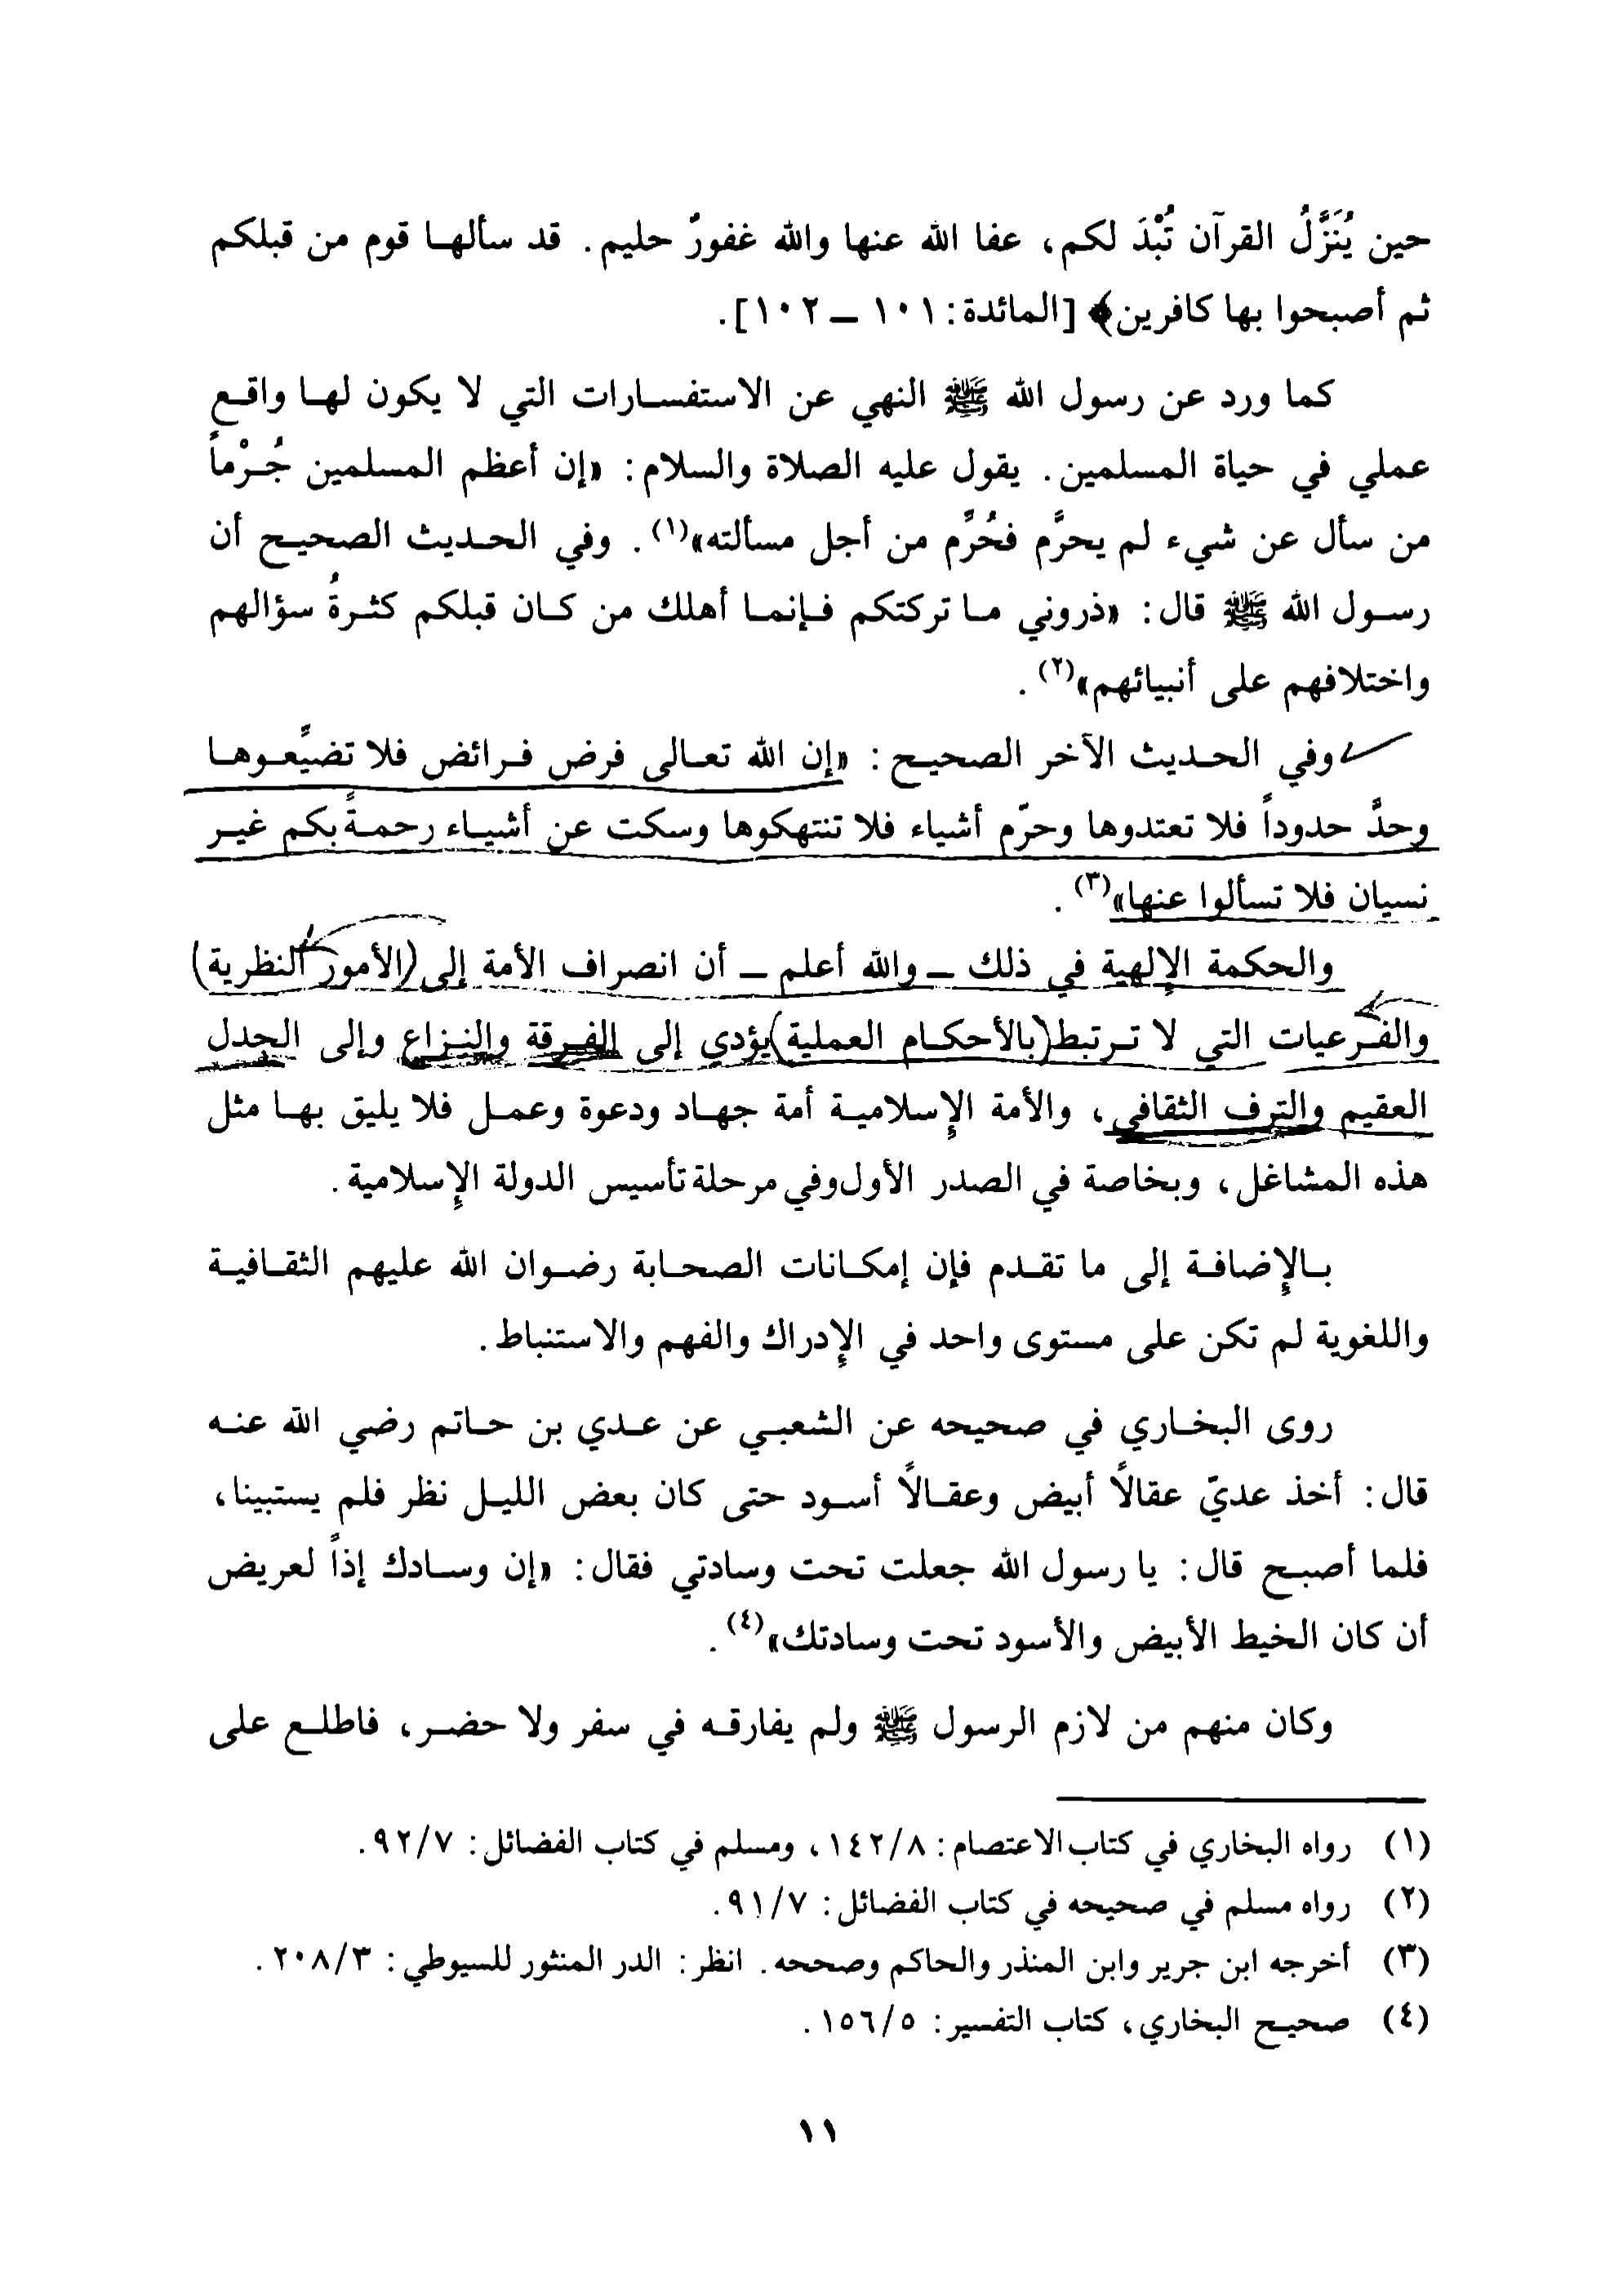 حين يُنَزَّلُ القرآن تُبْدَ لكم، عفا الله عنها والله غفورٌ حليم. قد سألها قوم من قبلكم
ثم أصبحوا بها كافرين﴾ [المائدة: ١٠١ – ١٠٢].
كما ورد عن رسول الله ﷺ النهي عن الاستفسارات التي لا يكون لها واقع
عملي في حياة المسلمين. يقول عليه الصلاة والسلام: «إن أعظم المسلمين جُرْماً
من سأل عن شيء لم يحرَّم فحُرِّم من أجل مسألته»(١). وفي الحديث الصحيح أن
رسول الله ﷺ قال: «ذروني ما تركتكم فإنما أهلك من كان قبلكم كثرةُ سؤالهم
واختلافهم على أنبيائهم»(٢).
وفي الحديث الآخر الصحيح: «إن الله تعالى فرض فرائض فلا تضيِّعوها
وحدَّ حدوداً فلا تعتدوها وحرّم أشياء فلا تنتهكوها وسكت عن أشياء رحمةً بكم غير
نسيان فلا تسألوا عنها»(٣).
والحكمة الإلهية في ذلك – والله أعلم – أن انصراف الأمة إلى (الأمور النظرية)
والفرعيات التي لا ترتبط (بالأحكام العملية) يؤدي إلى الفرقة والنزاع وإلى الجدل
العقيم والترف الثقافي، والأمة الإسلامية أمة جهاد ودعوة وعمل فلا يليق بها مثل
هذه المشاغل، وبخاصة في الصدر الأول وفي مرحلة تأسيس الدولة الإسلامية.
بالإضافة إلى ما تقدم فإن إمكانات الصحابة رضوان الله عليهم الثقافية
واللغوية لم تكن على مستوى واحد في الإدراك والفهم والاستنباط.
روى البخاري في صحيحه عن الشعبي عن عدي بن حاتم رضي الله عنه
قال: أخذ عديّ عقالًا أبيض وعقالًا أسود حتى كان بعض الليل نظر فلم يستبينا،
فلما أصبح قال: يا رسول الله جعلت تحت وسادتي فقال: «إن وسادك إذاً لعريض
أن كان الخيط الأبيض والأسود تحت وسادتك»(٤).
وكان منهم من لازم الرسول ﷺ ولم يفارقه في سفر ولا حضر، فاطلع على
(١) رواه البخاري في كتاب الاعتصام: ١٤٢/٨، ومسلم في كتاب الفضائل: ٩٢/٧.
(٢) رواه مسلم في صحيحه في كتاب الفضائل: ٩١/٧.
(٣) أخرجه ابن جرير وابن المنذر والحاكم وصححه. انظر: الدر المنثور للسيوطي: ٢٠٨/٣.
(٤) صحيح البخاري، كتاب التفسير: ١٥٦/٥.
١١